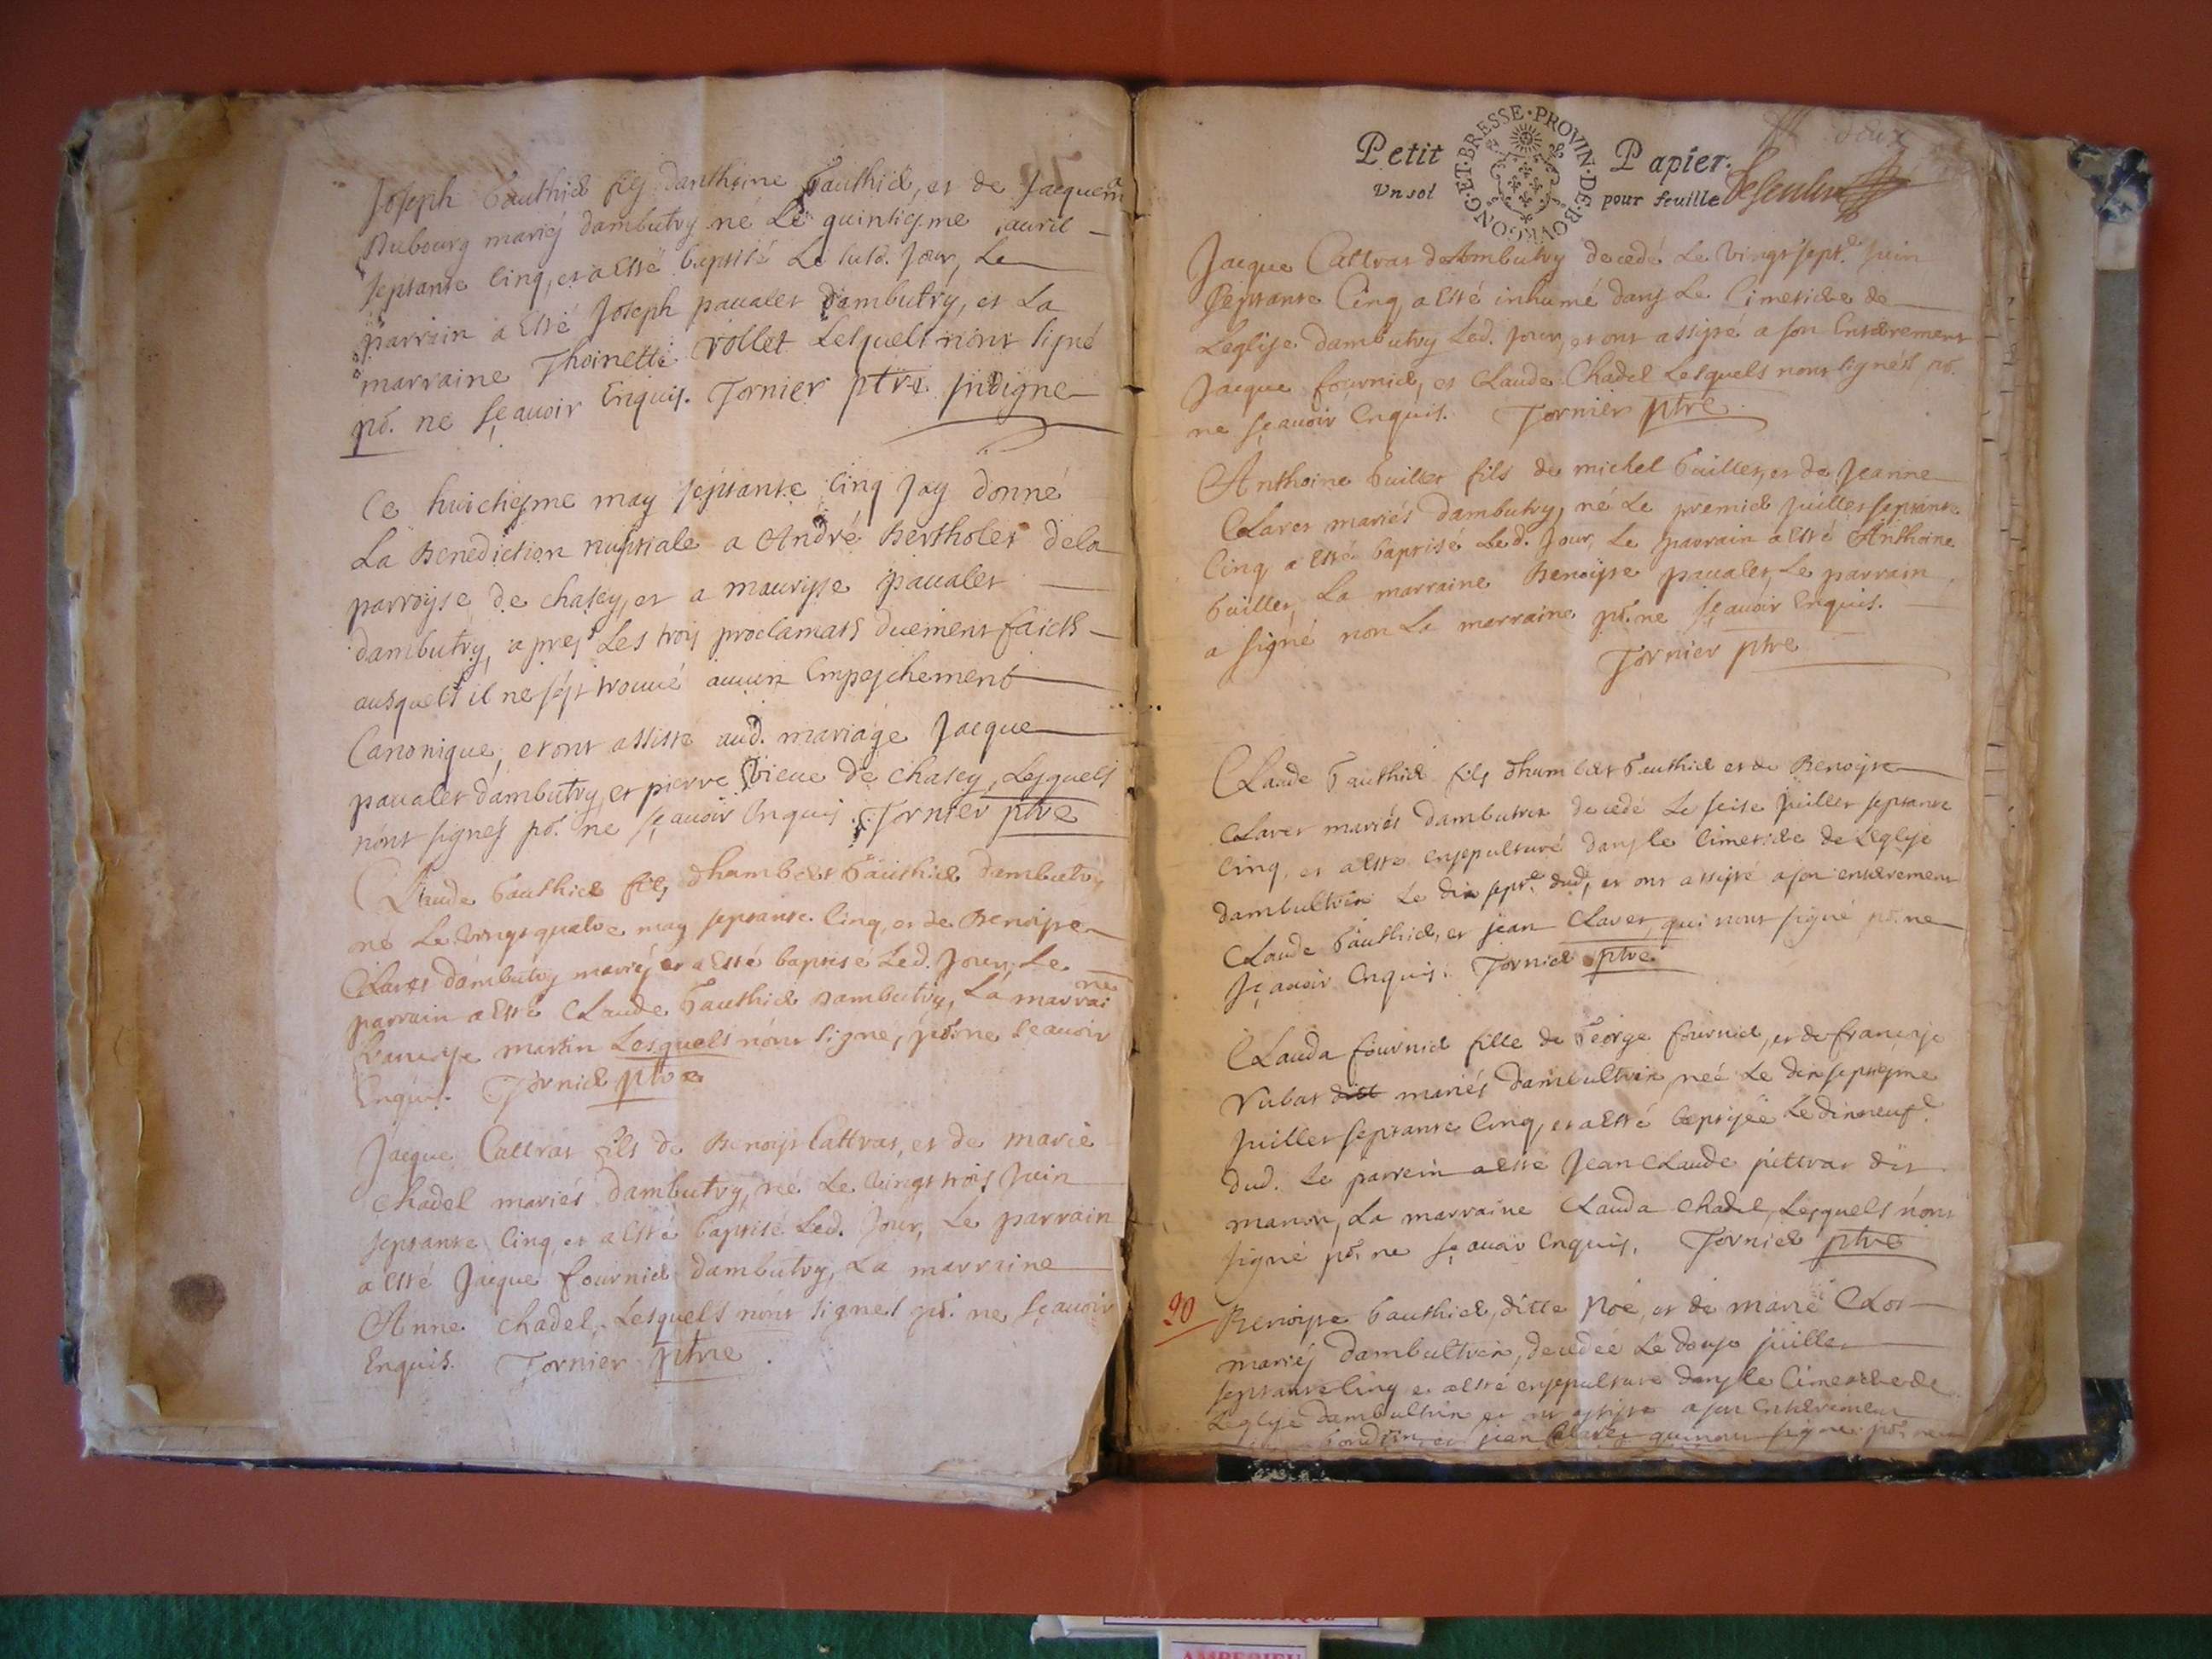 Joseph Gauthier fils danthoine Gauthier, et de Jacquema
Dubourg mariés dambutry né Le quintiesme auril
septante cinq, et a esté baptisé Le susd. Jour, Le
parrain a Esté Joseph paualet dambutry, et La
marraine Thoinette rollet Lesquels n'ont signé
pr. ne sçauoir Enquis. Tornier ptre indigne
Ce huictiesme may septante Cinq Jay donné
La Benediction nuptiale a André Bertholet dela
parroisse de chasey, et a maurisse paualet
dambutry, apres Les trois proclamats duement faicts
ausquels il ne sest trouué aucun Empeschement
Canonique, et ont assisté aud. mariage Jacque
paualet dambutry, et pierre de chasey, Lesquels
n'ont signés pr. ne sçauoir Enquis. Tornier ptre
Claude Gauthier fils dhumbert Gauthier dambutry
né Le vingt quatre may septante Cinq, et de Benoiste
Claret dambutry mariés et a Esté baptisé Led. Jour, Le
parrain a Esté Claude Gauthier dambutry, La marraine
francoise martin Lesquels n'ont signé, pr. ne sçauoir
Enquis. Tornier ptre
Jacque Cattras fils de Benoist Cattras, et de marie
chadel mariés dambutry, né Le vingt trois Juin
septante Cinq, et a Esté baptisé Led. Jour, Le parrain
a esté Jacque fournier dambutry, La marraine
Anne chadel, Lesquels n'ont signés pr. ne sçauoir
Enquis. Tornier ptre.
Petit Papier.
Vn sol pour feuille
BOVRGONG·ET·BRESSE·PROVIN·DE
deux
Jacque Cattras dAmbutry decedé Le vingt sept.e Juin
septante Cinq, a Esté inhumé dans Le Cimetiere de
Leglise dambutry Led. Jour, et ont assisté a son Enterrement
Jacque fournier, et Claude Chadel Lesquels n'ont signés pr.
ne sçauoir Enquis. Tornier ptre.
Anthoine Guillet fils de michel Guillet, et de Jeanne
Claret mariés dambutry, né Le premier Juillet septante
Cinq a esté baptisé Led. Jour, Le parrain a esté Anthoine
Guillet, La marraine Benoiste paualet, Le parrain
a signé non La marraine pr. ne sçauoir Enquis.
Tornier ptre
Claude Gauthier fils dhumbert Gauthier et de Benoiste
Claret mariés dambutrix decedé Le seise Juillet septante
Cinq, et a esté ensepulturé dans le Cimetiere de Leglise
dambultrix Le dix sept.e dud., et ont assisté a son enterrement
Claude Gauthier, et jean Claret, qui n'ont signé pr. ne
sçauoir Enquis. Tornier ptre
Clauda fournier fille de George fournier, et de françoise
mariés dambultrix, neé Le dix septiesme
Juillet septante Cinq, et a esté baptisée Le dixneuf.e
dud. Le parrein a esté Jean Claude pittras dit
manon, La marraine Clauda chadel, Lesquels n'ont
signé pr. ne sçauoir Enquis. Tornier ptre
90
Benoiste Gauthier, ditte Noé, et de marie Clos
mariés dambultrix, decedée Le douse juillet
septante cinq et a esté ensepulture dans le Cimetiere de
Leglise dambultrix et ont assisté a son Enterrement
et jean Claret qui n'ont signé pr. ne